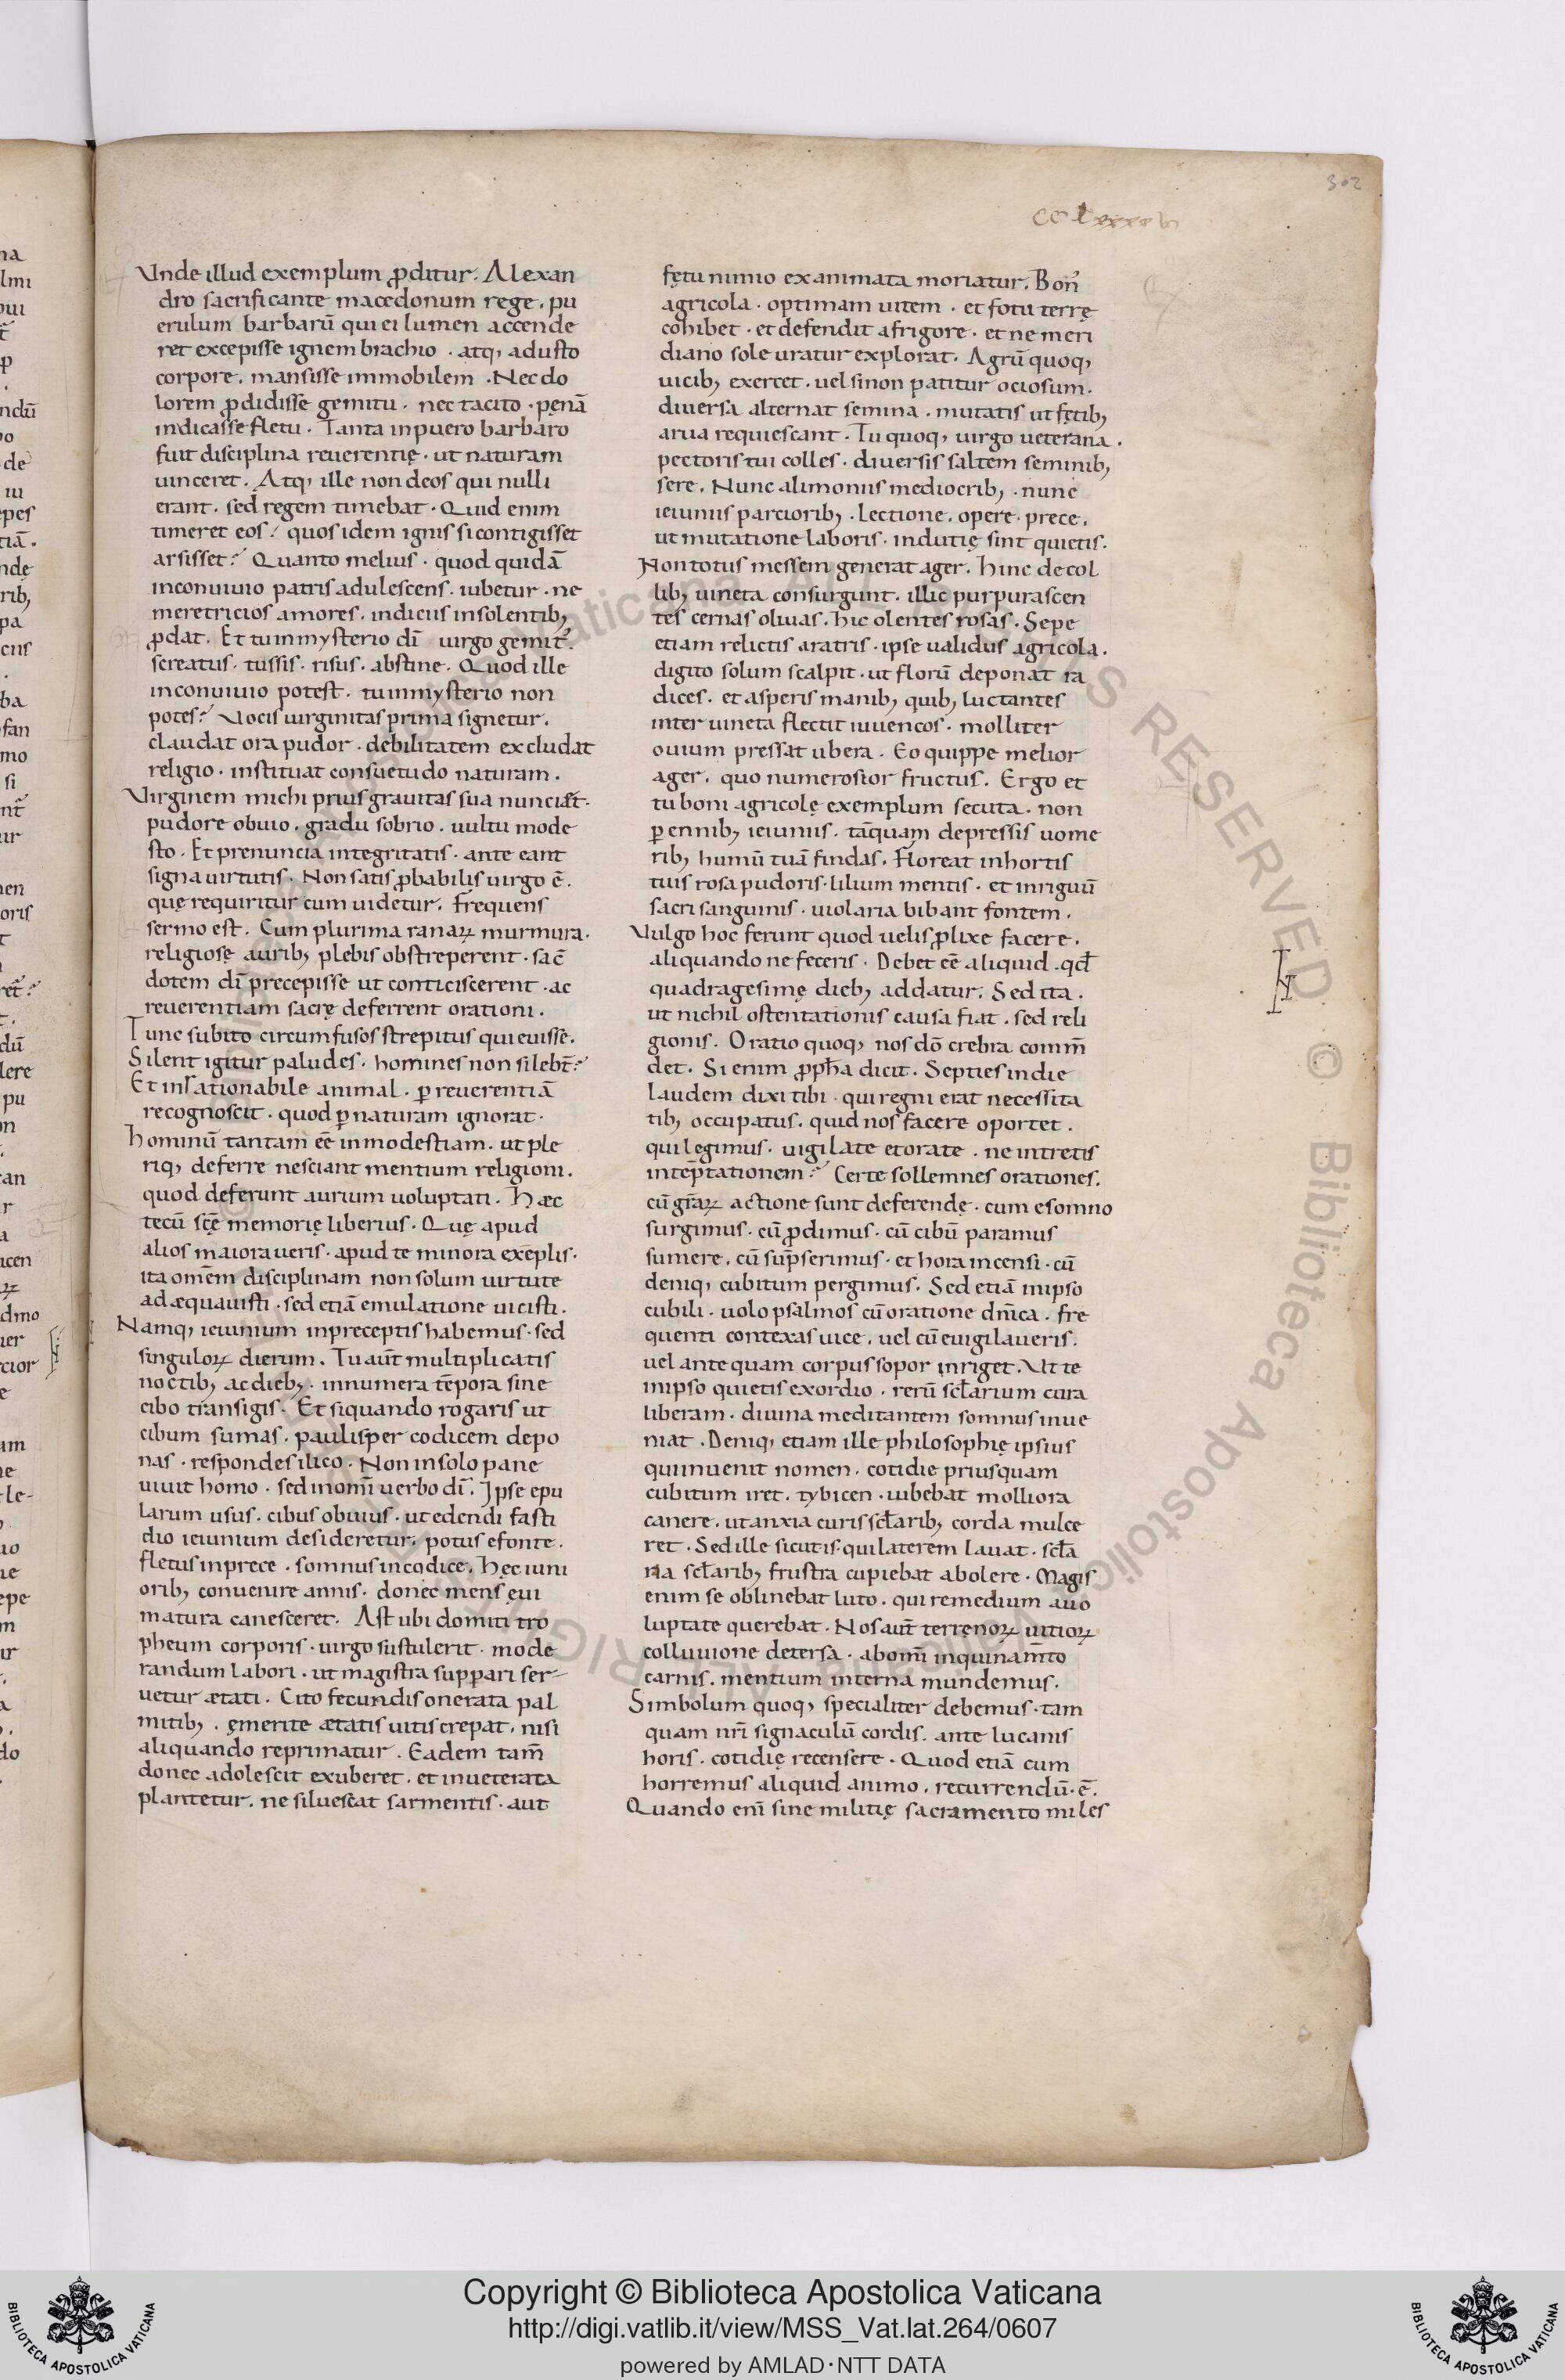 302
Vnde illud exemplum ꝓditur. Alexan
dro sacrificante macedonum rege. pu
erulum barbarū qui ei lumen accende
ret excepisse ignem brachio . atq, adusto
corpore. mansisse immobilem . Nec do
lorem ꝓdidisse gemitu . nec tacito . pęnā
indicasse fletu . Tanta in puero barbaro
fuit disciplina reuerentię . ut naturam
uinceret . Atq, ille non deos qui nulli
erant . sed regem timebat . Quid enim
timeret eos? quos idem ignis si contigisset
arsisset? Quanto melius . quod quidā
in conuiuio patris adulescens . iubetur . ne
meretricios amores . indicus insolentib,
ꝓdat . Et tu in mysterio dī uirgo gemit᾽.
screatus . tussis . risus . abstine . Quod ille
in conuiuio potest . tu in mysterio non
potes? Vocis uirginitas prima signetur.
claudat ora pudor . debilitatem excludat
religio . instituat consuetudo naturam .
Virginem michi prius grauitas sua nunciet .
pudore obuio . gradu sobrio . uultu mode
sto . Et prenuncia integritatis . ante eant
signa uirtutis . Non satis ꝓbabilis uirgo ē .
quę requiritur cum uidetur . Frequens
sermo est . Cum plurima ranaꝝ murmura .
religiosę aurib, plebis obstreperent . sacē
dotem dī precepisse ut conticiscerent . ac
reuerentiam sacrę deferrent orationi .
Tunc subito circumfusos strepitus quieuisse.
Silent igitur paludes . homines non silebt̄?
Et inrationabile animal . ꝑ reuerentiā
recognoscit . quod ꝑ naturam ignorat .
Hominū tantam eē inmodestiam . ut ple
riq, deferre nesciant mentium religioni .
quod deferunt aurium uoluptati . Hæc
tecū scę̄ memorię liberius . Quę apud
alios maiora ueris . apud te minora exēplis .
ita omēm disciplinam non solum uirtute
adæquauisti . sed etiā emulatione uicisti .
Namq, ieiunium in preceptis habemus . sed
singuloꝝ dierum . Tu aut̄ multiplicatis
noctib, ac dieb, . innumera tēpora sine
cibo transigis . Et siquando rogaris ut
cibum sumas . paulisper codicem depo
nas . respondes ilico . Non in solo pane
uiuit homo . sed in omī uerbo dī . Ipse epu
larum usus . cibus obuius . ut edendi fasti
dio ieiunium desideretur . potus e fonte .
fletus in prece . somnus in codice . Hęc iuni
orib, conuenire annis . donec mens ęui
matura canesceret . Ast ubi domiti tro
pheum corporis . uirgo sustulerit . mode
randum labori . ut magistra suppari ser-
uetur ætati . Cito fecundis onerata pal
mitib, . ęmerite ætatis uitis crepat . nisi
aliquando reprimatur . Eadem tam̄
donec adolescit exuberet . et inueterata
plantetur . ne siluescat sarmentis . aut
fętu nimio exanimata moriatur . Bon᾽
agricola . optimam uitem . et fotu terrę
cohibet . et defendit a frigore . et ne meri
diano sole uratur explorat . Agrū quoq,
uicib, exercet . uel si non patitur ociosum .
diuersa alternat semina . mutatis ut fętib,
arua requiescant . Tu quoq, uirgo ueterana .
pectoris tui colles . diuersis saltem seminib,
sere . Nunc alimoniis mediocrib, . nunc
ieiuniis parciorib, . lectione . opere . prece .
ut mutatione laboris . indutię sint quietis .
Non totus messem generat ager . hinc de col
lib, uineta consurgunt . illic purpurascen
tes cernas oliuas . hic olentes rosas . Sepe
etiam relictis aratris . ipse ualidus agricola .
digito solum scalpit . ut florū deponat ra
dices . et asperis manib, quib, luctantes
inter uineta flectit iuuencos . molliter
ouium pressat ubera . Eo quippe melior
ager . quo numerosior fructus . Ergo et
tu boni agricolę exemplum secuta . non
ꝑennib, ieiuniis . tāquam depressis uome
rib, humū tuā findas . Floreat in hortis
tuis rosa pudoris . lilium mentis . et inriguū
sacri sanguinis . uiolaria bibant fontem .
Vulgo hoc ferunt quod uelis ꝓlixe facere .
aliquando ne feceris . Debet eē aliquid . qđ
quadragesimę dieb, addatur . Sed ita .
ut nichil ostentationis causa fiat . sed reli
gionis . Oratio quoq, nos dō crebra comm̄
det . Si enim ꝓph̄a dicit . Septies in die
laudem dixi tibi . qui regni erat necessita
tib, occupatus . quid nos facere oportet .
qui legimus . uigilate et orate . ne intretis
in tēptationem? Certe sollemnes orationes .
cū gr̄aꝝ actione sunt deferendę . cum e somno
surgimus . cū ꝓdimus . cū cibū paramus
sumere . cū sūpserimus . et hora incensi . cū
deniq, cubitum pergimus . Sed etiā in ipso
cubili . uolo psalmos cū oratione dn̄ica . fre
quenti contexas uice . uel cū euigilaueris .
uel ante quam corpus sopor inriget . Vt te
in ipso quietis exordio . rerū scl̄arium cura
liberam . diuina meditantem somnus inue
niat . Deniq, etiam ille philosophię ipsius
qui inuenit nomen . cotidie priusquam
cubitum iret . tybicen . iubebat molliora
canere . ut anxia curis scl̄arib, corda mulce
ret . Sed ille sicut is . qui laterem lauat . scl̄a
ria scl̄arib, frustra cupiebat abolere . Magis
enim se oblinebat luto . qui remedium a uo
luptate querebat . Nos aut̄ terrenoꝝ uitioꝝ
colluuione detersa . ab om̄i inquinam̄to
carnis . mentium interna mundemus .
Simbolum quoq, specialiter debemus . tam
quam nr̄i signaculū cordis . ante lucanis
horis . cotidię recensere . Quod etiā cum
horremus aliquid animo . recurrendū . ē .
Quando enī sine militię sacramento miles
Copyright © Biblioteca Apostolica Vaticana
http://digi.vatlib.it/view/MSS_Vat.lat.264/0607
powered by AMLAD·NTT DATA
BIBLIOTECA APOSTOLICA VATICANA
BIBLIOTECA APOSTOLICA VATICANA